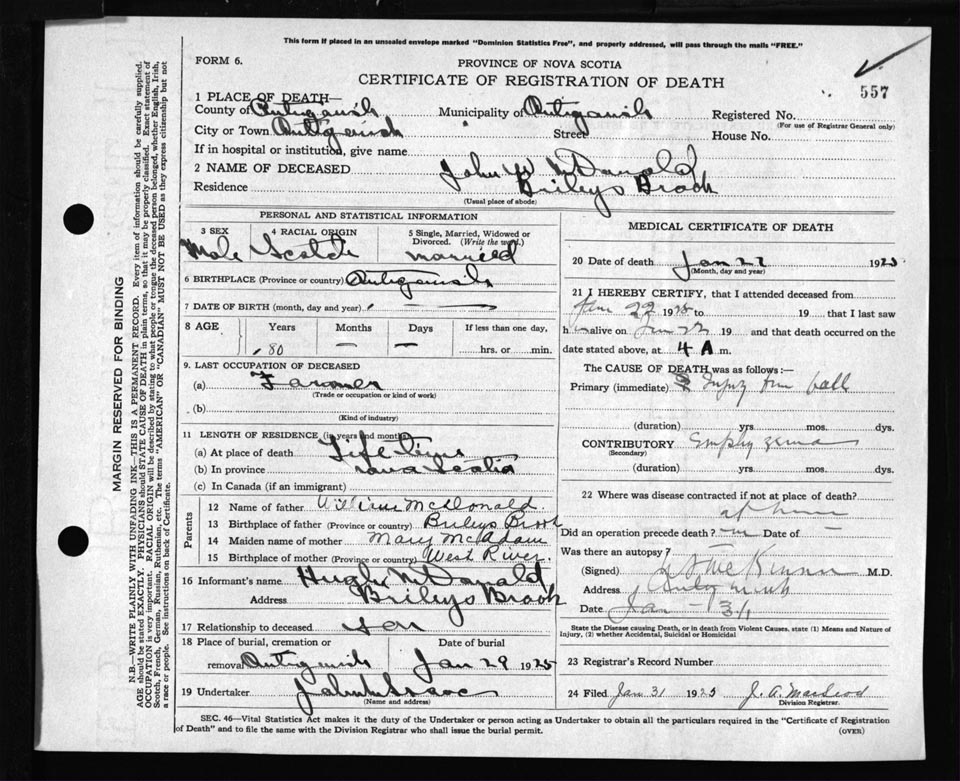 This form if placed in an unsealed envelope marked "Dominion Statistics Free", and properly addressed, will pass through the mails "FREE."
FORM 6.
PROVINCE OF NOVA SCOTIA
CERTIFICATE OF REGISTRATION OF DEATH
557
1 PLACE OF DEATH—
County of Antigonish Municipality of Antigonish Registered No.
(For use of Registrar General only)
City or Town Antigonish Street House No.
If in hospital or institution, give name
2 NAME OF DECEASED John W McDonald
Residence Brileys Brook
(Usual place of abode)
PERSONAL AND STATISTICAL INFORMATION
3 SEX 4 RACIAL ORIGIN 5 Single, Married, Widowed or Divorced. (Write the word.)
Male Scotch married
6 BIRTHPLACE (Province or country) Antigonish
7 DATE OF BIRTH (month, day and year)
8 AGE Years Months Days If less than one day,
80 — — hrs. or min.
9. LAST OCCUPATION OF DECEASED
(a) Farmer
(Trade or occupation or kind of work)
(b)
(Kind of industry)
11 LENGTH OF RESIDENCE (in years and months)
(a) At place of death Life time
(b) In province Nova Scotia
(c) In Canada (if an immigrant)
Parents
12 Name of father William McDonald
13 Birthplace of father (Province or country) Brileys Brook
14 Maiden name of mother Mary McAdam
15 Birthplace of mother (Province or country) West River.
16 Informant's name Hugh McDonald
Address Brileys Brook
17 Relationship to deceased son
18 Place of burial, cremation or removal Antigonish Date of burial Jan 29 1925
19 Undertaker
(Name and address)
MEDICAL CERTIFICATE OF DEATH
20 Date of death Jan 27 1925
(Month, day and year)
21 I HEREBY CERTIFY, that I attended deceased from
Jan 22 1925 to 19 that I last saw
h is alive on Jan 22 19 and that death occurred on the
date stated above, at 4 A m.
The CAUSE OF DEATH was as follows:—
Primary (immediate) Injury from fall
(duration) yrs. mos. dys.
CONTRIBUTORY Emphyzema
(Secondary)
(duration) yrs. mos. dys.
22 Where was disease contracted if not at place of death?
at home
Did an operation precede death? no Date of
Was there an autopsy?
(Signed) M.D.
Address Antigonish
Date Jan 31
State the Disease causing Death, or in death from Violent Causes, state (1) Means and Nature of
Injury, (2) whether Accidental, Suicidal or Homicidal
23 Registrar's Record Number
24 Filed Jan 31 1925 J. A. MacLeod
Division Registrar.
SEC. 46—Vital Statistics Act makes it the duty of the Undertaker or person acting as Undertaker to obtain all the particulars required in the "Certificate of Registration
of Death" and to file the same with the Division Registrar who shall issue the burial permit.
(OVER)
MARGIN RESERVED FOR BINDING
N.B.—WRITE PLAINLY WITH UNFADING INK—THIS IS A PERMANENT RECORD. Every item of information should be carefully supplied.
AGE should be stated EXACTLY. PHYSICIANS should STATE CAUSE OF DEATH in plain terms, so that it may be properly classified. Exact statement of
OCCUPATION is very important. RACIAL ORIGIN will be described by stating to what people or tongue the deceased person belonged, whether English, Irish,
Scotch, French, German, Russian, Ruthenian, etc. The terms "AMERICAN" OR "CANADIAN" MUST NOT BE USED as they express citizenship but not
a race or people. See instructions on back of Certificate.